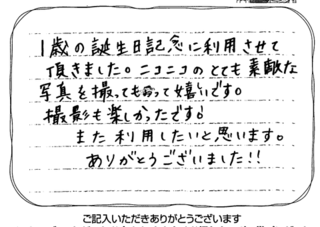 1歳の誕生日記念に利用させて
頂きました。ニコニコのとても素敵な
写真を撮ってもらって嬉しいです。
撮影も楽しかったです!
また利用したいと思います。
ありがとうございました!!
ご記入いただきありがとうございます